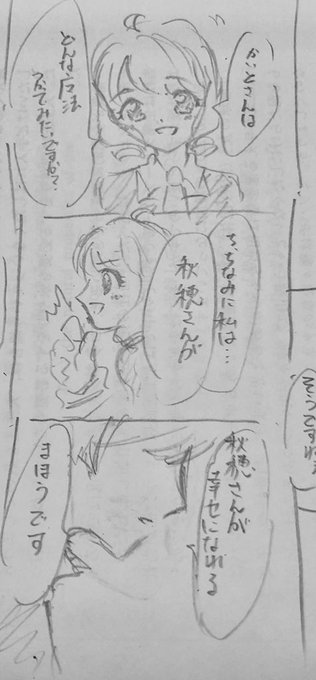 かいとさんは
どんな魔法
かてみたいですか?
ち、ちなみに私は…
秋穂さんが
そうですね
秋穂さんが
幸せになれる
まほうです